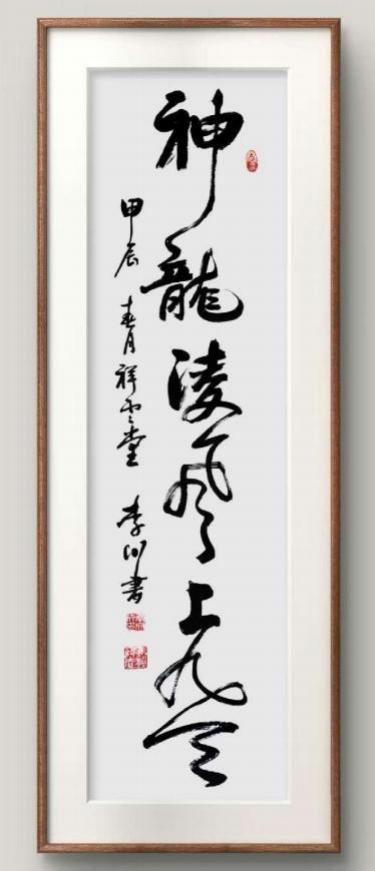 神龍凌風上九天
甲辰 春月祥雲堂 李川書